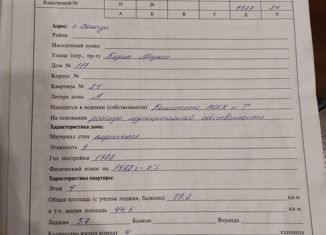 Кадастровый №
А Б В Г Д Е
Адрес: г. Вологда
Район
Населенный пункт
Улица (пер., пр-т) Карла Маркса
Дом № 117
Корпус №
Квартира № 84
Литера дома А
Находится в ведении (собственности) Комитета ЖКХ и Т
На основании реестра муниципальной собственности
Характеристика дома:
Материал стен кирпичные
Этажность 9
Год постройки 1988
Физический износ на 1988 г - 0%
Характеристика квартиры:
Этаж 4
Общая площадь (с учетом лоджии, балкона) 79,2 кв.м
в т.ч. жилая площадь 44,5 кв.м
Лоджия 3,7 Балкон Веранда
Количество жилых комнат 4 единица